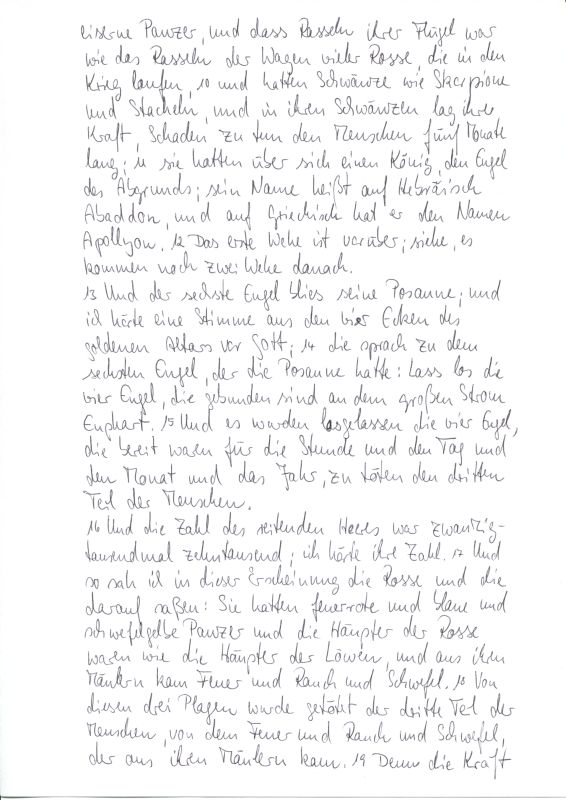 eiserne Panzer, und dass Rasseln ihrer Flügel war
wie das Rasseln der Wagen vieler Rosse, die in den
Krieg laufen, 10 und hatten Schwänze wie Skorpione
und Stacheln, und in ihren Schwänzen lag ihre
Kraft, Schaden zu tun den Menschen fünf Monate
lang; 11 sie hatten über sich einen König, den Engel
des Abgrunds; sein Name heißt auf Hebräisch
Abaddon, und auf Griechisch hat er den Namen
Apollyon. 12 Das erste Wehe ist vorüber; siehe, es
kommen noch zwei Wehe danach.
13 Und der sechste Engel blies seine Posaune; und
ich hörte eine Stimme aus den vier Ecken des
goldenen Altars vor Gott; 14 die sprach zu dem
sechsten Engel, der die Posaune hatte: Lass los die
vier Engel, die gebunden sind an dem großen Strom
Euphart. 15 Und es wurden losgelassen die vier Engel,
die bereit waren für die Stunde und den Tag und
den Monat und das Jahr, zu töten den dritten
Teil der Menschen.
16 Und die Zahl des reitenden Heeres war zwanzig-
tausendmal zehntausend; ich hörte ihre Zahl. 17 Und
so sah ich in dieser Erscheinung die Rosse und die
darauf saßen: Sie hatten feuerrote und blaue und
schwefelgelbe Panzer und die Häupter der Rosse
waren wie die Häupter der Löwen, und aus ihren
Mäulern kam Feuer und Rauch und Schwefel. 18 Von
diesen drei Plagen wurde getötet der dritte Teil der
Menschen, von dem Feuer und Rauch und Schwefel,
der aus ihren Mäulern kam. 19 Denn die Kraft